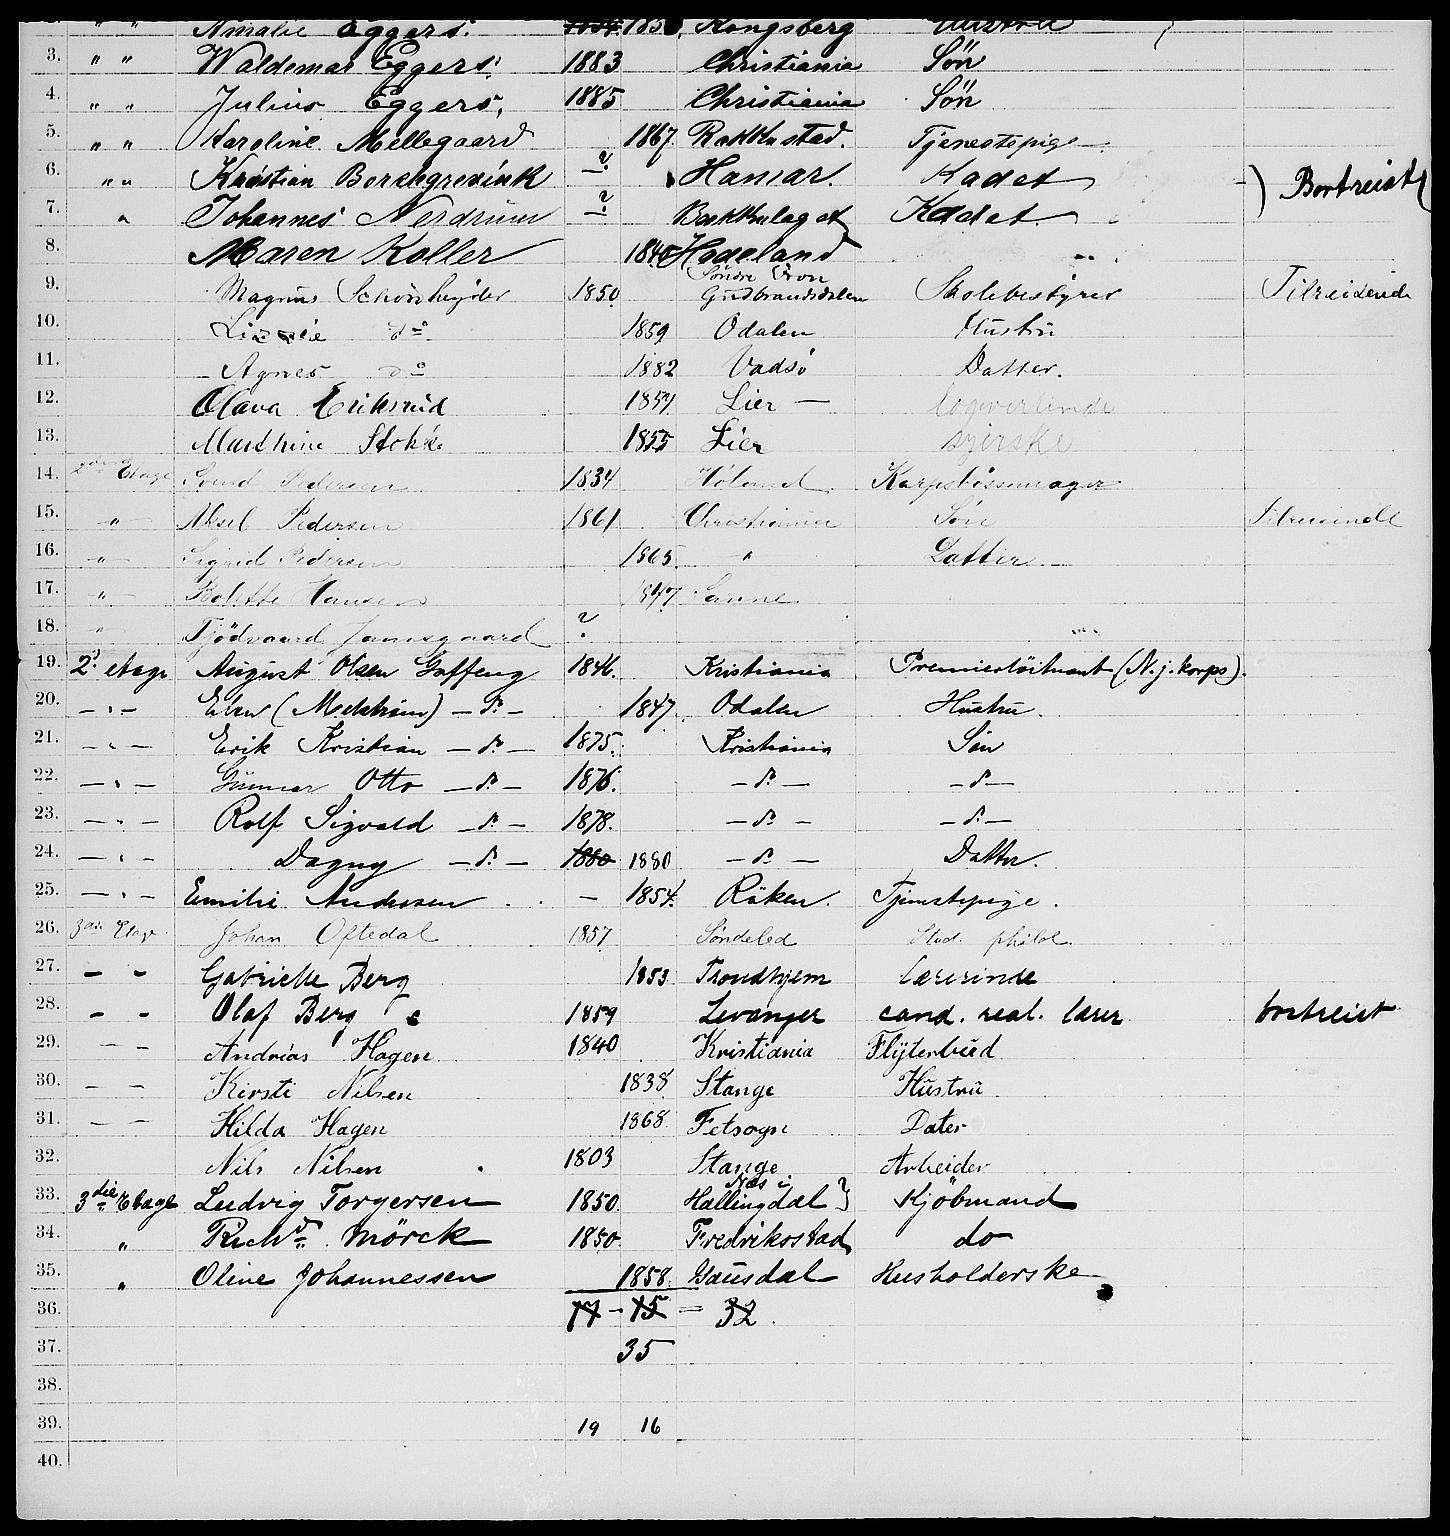 " " Amalie Eggers. 1854. 185 Kongsberg Hustru
3. " " Waldemar Eggers. 1883 Christiania Sön
4. " " Julius Eggers, 1885 Christiania Sön
5. " " Karoline Mellegaard 1867. Rakkestad. Tjenestepige
6. " " Kristian Borchgrevink ? Hamar. Kadet ) Bortreist
7. " Johannes Nerdrum ? Bækkelaget Kadet
8. Maren Koller 1840 Hadeland "
9. Magnus Schönheyder 1850 Söndre Fron Gudbrandsdalen Skolebestyrer Tilreisende
10. Lizzie do 1859 Odalen Hustru
11. Agnes do 1882 Vadsö Datter.
12. Olava Eriksrud 1857 Lier — logivertinde
13. Marthine Stokke 1855 Lier syerske
14. 2den Etage Svend Pedersen 1834 Höland
15. " Aksel Pedersen 1861 Christiania Sön Tilreisende
16. " Sigrid Pedersen 1865. " Datter.
17. " Bolette Hansen 1847
18. " ?
19. 2. etage August Olsen 1846. Kristiania Premierlöitnant (N. j. korps).
20. — " — — do — 1847. Odalen Hustru.
21. — " — Erik Kristian — do — 1875. Kristiania Sön
22. — " — Gunnar Otto — do — 1876. — do — — do —
23. — " — Rolf Sigvald — do — 1878. — do — — do —
24. — " — Dagny — do — 1880 1880 — do — Datter.
25. — " — Emilie Andersen — 1854. Röken. Tjenestepige.
26. 3die Etage Johan Oftedal 1857 Söndeled Stud. philol.
27. - - Gabrielle Berg 1853. Trondhjem lærerinde
28. - - Olaf Berg 1859 Levanger cand. real. lærer bortreist
29. - - Andrias Hagen 1840 Kristiania Flytterbud
30. - - Kirsti Nilsen 1838 Stange Hustru
31. - - Hilda Hagen 1868 Fetsogn Dater
32. Nils Nilsen 1803 Stange Arbeider
33. 3die Etage Ludvig Torgersen 1850. Næs i Hallingdal ? Kjöbmand
34. " Richd. Mörck 1850. Fredrikstad do
35. " Oline Johannessen 1858. Gausdal Husholderske
36. 17 - 15 = 32.
37. 35
38.
39. 19 16
40.